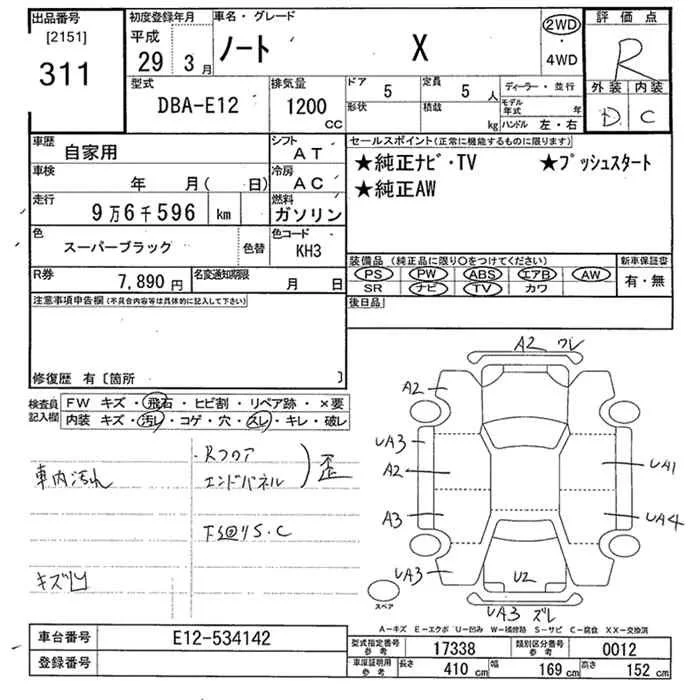 出品番号
[2151]
311
初度登録年月
平成
29 3月
車名・グレード
ノート X
2WD
・
4WD
評価点
R
外装 内装
D C
型式
DBA-E12
排気量
1200
CC
ドア 5
定員 5 人
形状
積載 kg
ディーラー・並行
モデル年式 年
ハンドル 左・右
車歴
自家用
シフト
AT
車検
年 月( 日)
冷房
AC
走行
9万6千596 km
燃料
ガソリン
色
スーパーブラック
色替
色コード
KH3
R券
7,890円
名変通知期限
月 日
セールスポイント(正常に機能するものに限ります)
★純正ナビ・TV ★プッシュスタート
★純正AW
装備品 (純正品に限り○をつけてください)
PS PW ABS エアB AW
SR ナビ TV カワ
新車保証書
有・無
後日品
注意事項申告欄(不具合内容等は具体的に記入して下さい)
修復歴 有〔箇所 〕
検査員
記入欄
FW キズ・飛石・ヒビ割・リペア跡・×要
内装 キズ・汚レ・コゲ・穴・スレ・キレ・破レ
車内汚れ
・Rフロア
エンドパネル
歪
下回りS・C
キズ凹
A2 ワレ
A2
UA3
A2
A3
UA3
UA1
UA4
U2
UA3 ズレ
スペア
A−キズ E−エクボ U−凹み W−補修跡 S−サビ C−腐食 XX−交換済
車台番号
E12-534142
登録番号
型式指定番号
参考
17338
類別区分番号
参考
0012
車庫証明用
参考
長さ 410 cm
幅 169 cm
高さ 152 cm